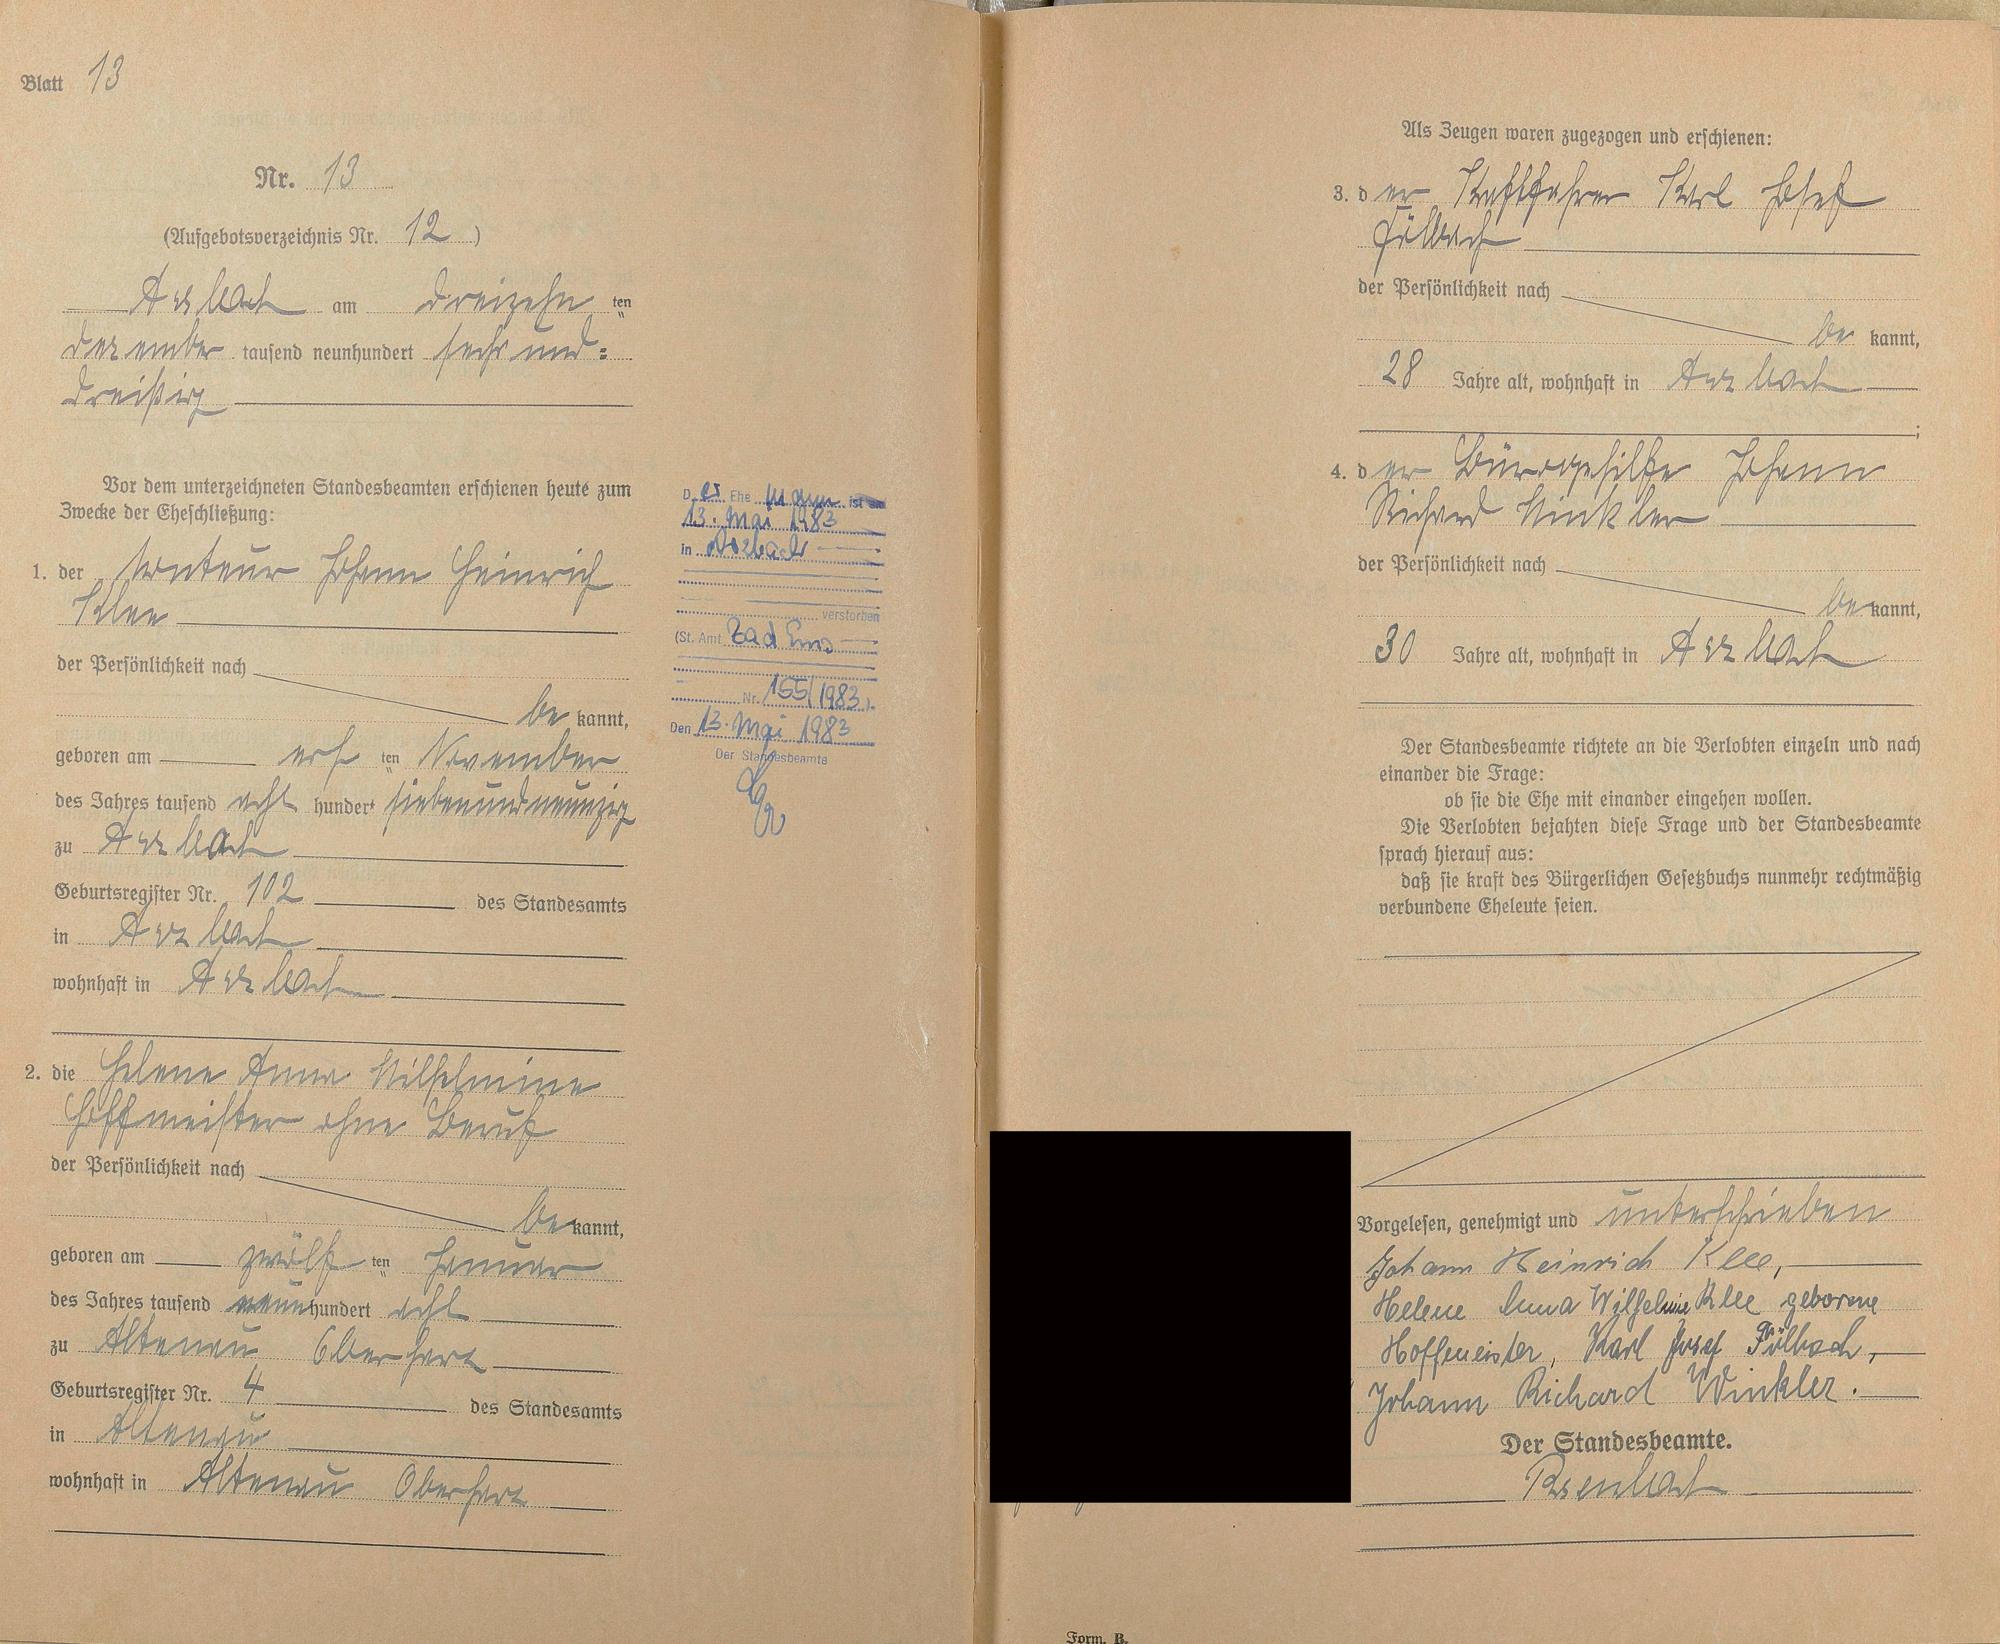 Blatt 13
Nr. 13
(Aufgebotsverzeichnis Nr. 12)
Arzbach am dreizehn ten
dezember tausend neunhundert sechsund=
dreißig
Vor dem unterzeichneten Standesbeamten erschienen heute zum
Zwecke der Eheschließung:
1. der Monteur Johann Heinrich
Klee
der Persönlichkeit nach
be kannt,
geboren am elf ten November
des Jahres tausend acht hundert siebenundneunzig
zu Arzbach
Geburtsregister Nr. 102 des Standesamts
in Arzbach
wohnhaft in Arzbach
2. die Helene Anna Wilhelmine
Hoffmeister ohne Beruf
der Persönlichkeit nach
be kannt,
geboren am zwölf ten Januar
des Jahres tausend neun hundert acht
zu Altenau Oberharz
Geburtsregister Nr. 4 des Standesamts
in Altenau
wohnhaft in Altenau Oberharz
D er Ehe mann ist am
13. Mai 1983
in Arzbach
verstorben
(St. Amt Bad Ems
Nr. 155/1983).
Den 13. Mai 1983
Der Standesbeamte
Als Zeugen waren zugezogen und erschienen:
3. d er Kraftfahrer Karl Josef
Fülbach
der Persönlichkeit nach
be kannt,
28 Jahre alt, wohnhaft in Arzbach
;
4. d er Bürogehilfe Johann
Richard Winkler
der Persönlichkeit nach
be kannt,
30 Jahre alt, wohnhaft in Arzbach
Der Standesbeamte richtete an die Verlobten einzeln und nach
einander die Frage:
ob sie die Ehe mit einander eingehen wollen.
Die Verlobten bejahten diese Frage und der Standesbeamte
sprach hierauf aus:
daß sie kraft des Bürgerlichen Gesetzbuchs nunmehr rechtmäßig
verbundene Eheleute seien.
Vorgelesen, genehmigt und unterschrieben
Johann Heinrich Klee,
Helene Anna Wilhelmine Klee geborene
Hoffmeister, Karl Josef Fülbach,
Johann Richard Winkler.
Der Standesbeamte.
Rosenbach
Form. B.